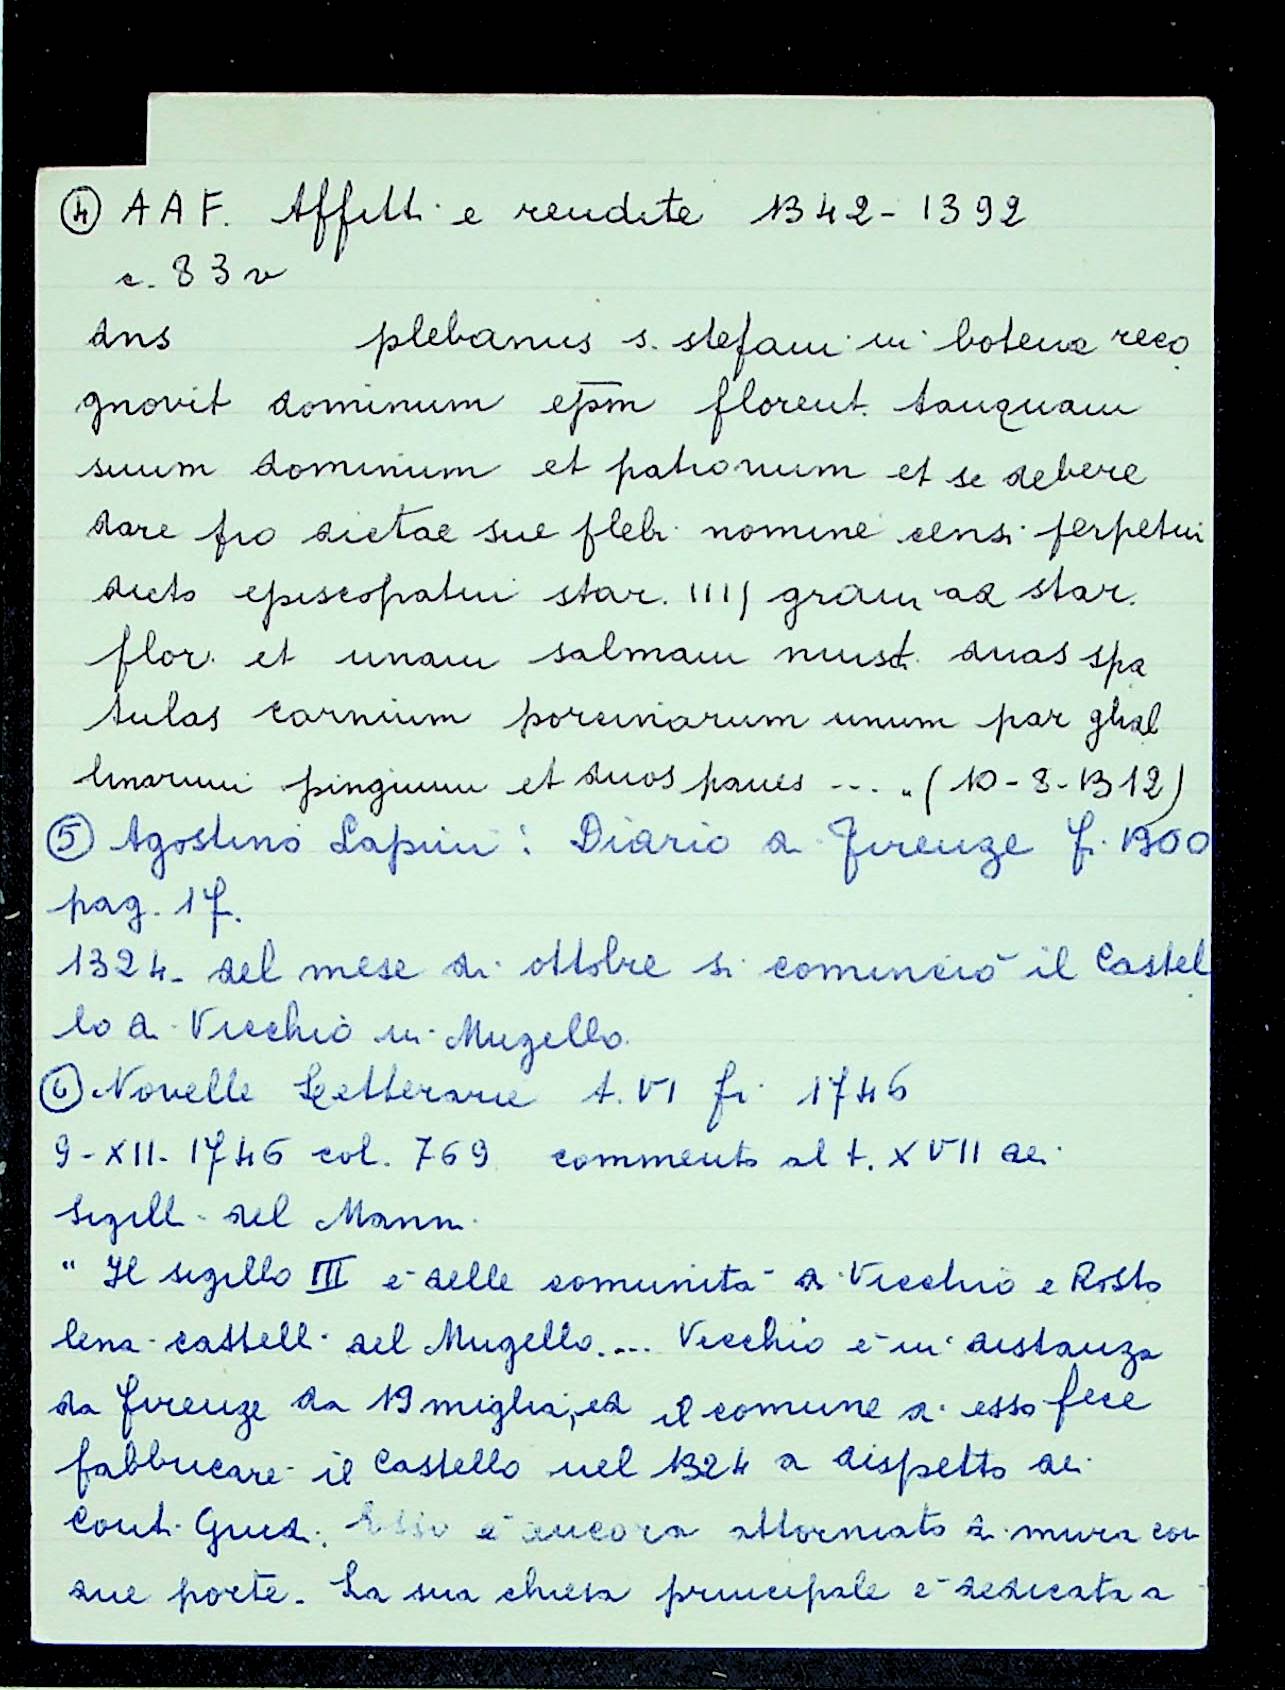 ④ A A F. Affitti e rendite 1342-1392
c. 83 v
dns plebanus s. stefani in botena reco
gnovit dominum epm florent. tanquam
suum dominum et patronum et se debere
dare pro dictae sue plebi nomine censi perpetui
dicto episcopatui star. IIIJ grani ad star.
flor. et unam salmam must. duas spa
tulas carnium porcinarum unum par ghal
linarum pinguium et duos panes .... (10-8-1312)
⑤ Agostino Lapini: Diario di Firenze fi. 1900
pag. 17.
1324- del mese di ottobre si cominciò il Castel
lo di Vicchio in Mugello.
⑥ Novelle Letterarie t. VI fi 1746
9-XII-1746 col. 769 commento al t. XVII dei
sigilli del Manni
" Il sigillo III è delle comunità di Vicchio e Rosto
lena castelli del Mugello.... Vicchio è in distanza
da firenze da 19 miglia, ed il comune di esso fece
fabbricare il Castello nel 1324 a dispetto dei
Conti Guidi. Esso è ancora attorniato di mura con
due porte. La sua chiesa principale è dedicata a